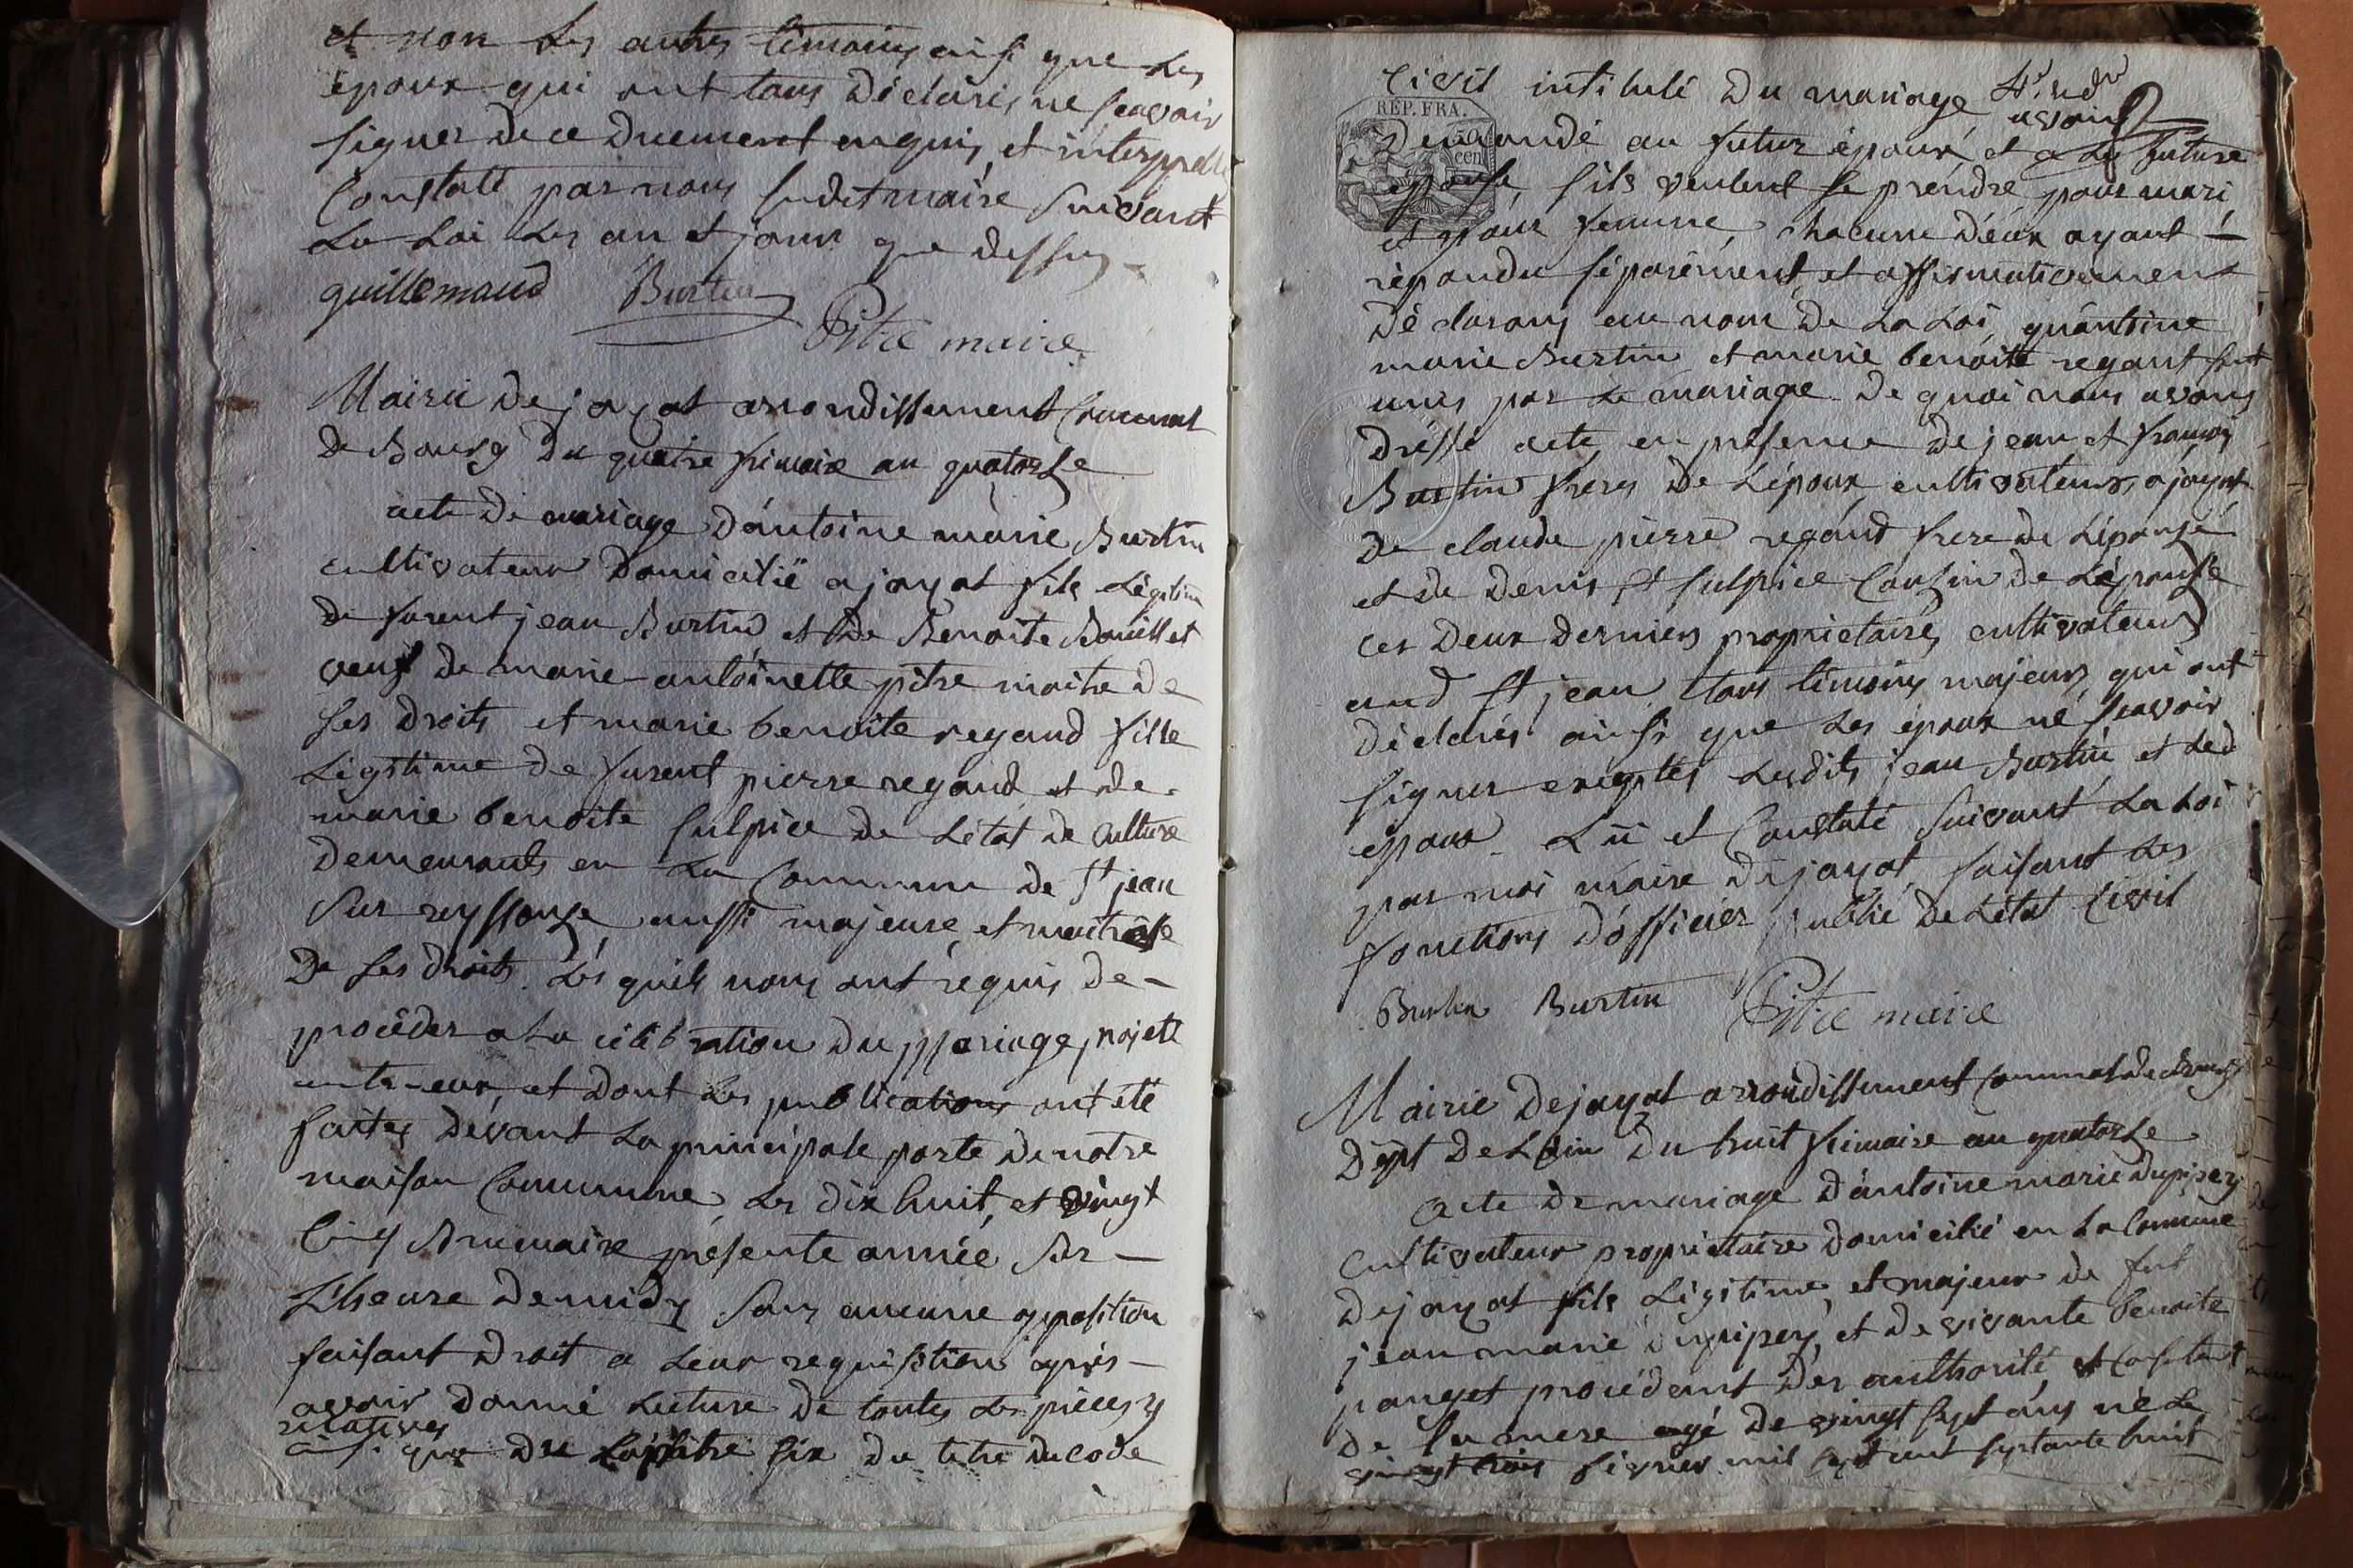 et non les autres témoins ainsi que les
époux qui ont tous déclarés ne scavoir
signer de ce duement enquis et interpellés
Constaté par nous susdit maire suivant
La Loi les an et jour que dessus
guillemaud Burtin
Pitre maire
Mairie de jayat arrondissement Communal
de Bourg du quatre frimaire an quatorse
acte de mariage d'antoine marie Burtin
cultivateur domicilié a jayat fils légitime
de furent jean Burtin et de Benoite Bouillet
veuf de marie antoinette pitre maitre de
ses droits et marie benoite regaud fille
Légitime de furent pierre regaud et de
marie benoite sulpice de L'état de culture
demeurants en La Commune de St jean
sur reyssouse aussi majeure et maitresse
De ses droits. Lesquels nous ont requis de
procéder a La célébration du mariage projetté
entr-eux, et dont les publications ont été
faites devant La principale porte de notre
maison Commune les dix huit et vingt
Cinq Brumaire présente année sur
L'heure de midy sans aucune opposition
faisant droit a leur requisition après
avoir donné Lecture de toutes les pièces y
relatives
ainsi que du Chapitre six du titre du code
Civil intitulé du mariage
avoir
RÉP. FRA.
50
cen
Demandé au futur époux et a La future
épouse s'ils veulent se prendre pour mari
et pour femme, chacune d'eux ayant
répondu séparément et affirmativement
déclarons au nom de La Loi, qu'antoine
marie Burtin et marie benoite regaut sont
unis par Le mariage. De quoi nous avons
dressé acte en présence de jean et françois
Burtin freres de L'époux, cultivateurs a jayat
de claude pierre regaud frere de L'épouse
et de denis St sulpice Cousin de L'épouse
ces deux derniers proprietaires cultivateurs
aud St jean, tous témoins majeurs qui ont
déclarés ainsi que Les époux ne scavoir
signer exceptés Lesdits jean Burtin et Led
époux. Lu et Constaté suivant La Loi
par moi maire de jayat faisant Les
fonctions d'officier public de L'état Civil
Burtin Burtin Pitre maire
Mairie de jayat arrondissement Communal de Bourg
Dept de L'ain du huit frimaire an quatorse
Acte de mariage d'antoine marie dupupey
Cultivateur proprietaire domicilié en La Commune
de jayat fils Légitime, et majeur de fut
jean marie dupupey, et de vivante benoite
panget procédant des authorité et Consentemt
de sa mere agé de vingt sept ans né Le
vingt trois fevrier mil sept cent septante huit